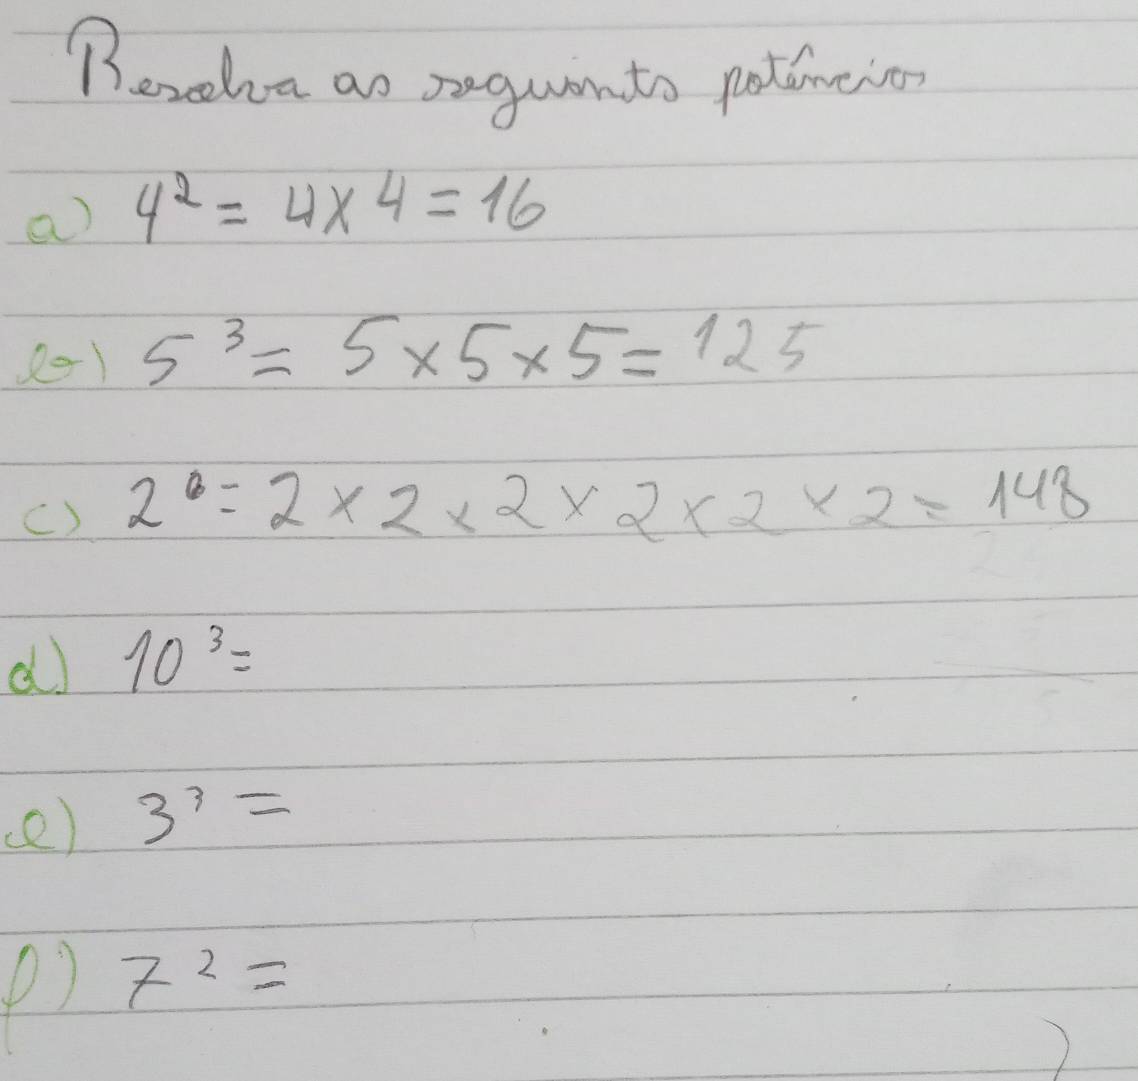 Resolva as seguints potências
a) 4² = 4 x 4 = 16
b) 5³ = 5 x 5 x 5 = 125
c) 2⁶ = 2 x 2 x 2 x 2 x 2 x 2 = 148
d) 10³ =
e) 3³ =
f) 7² =